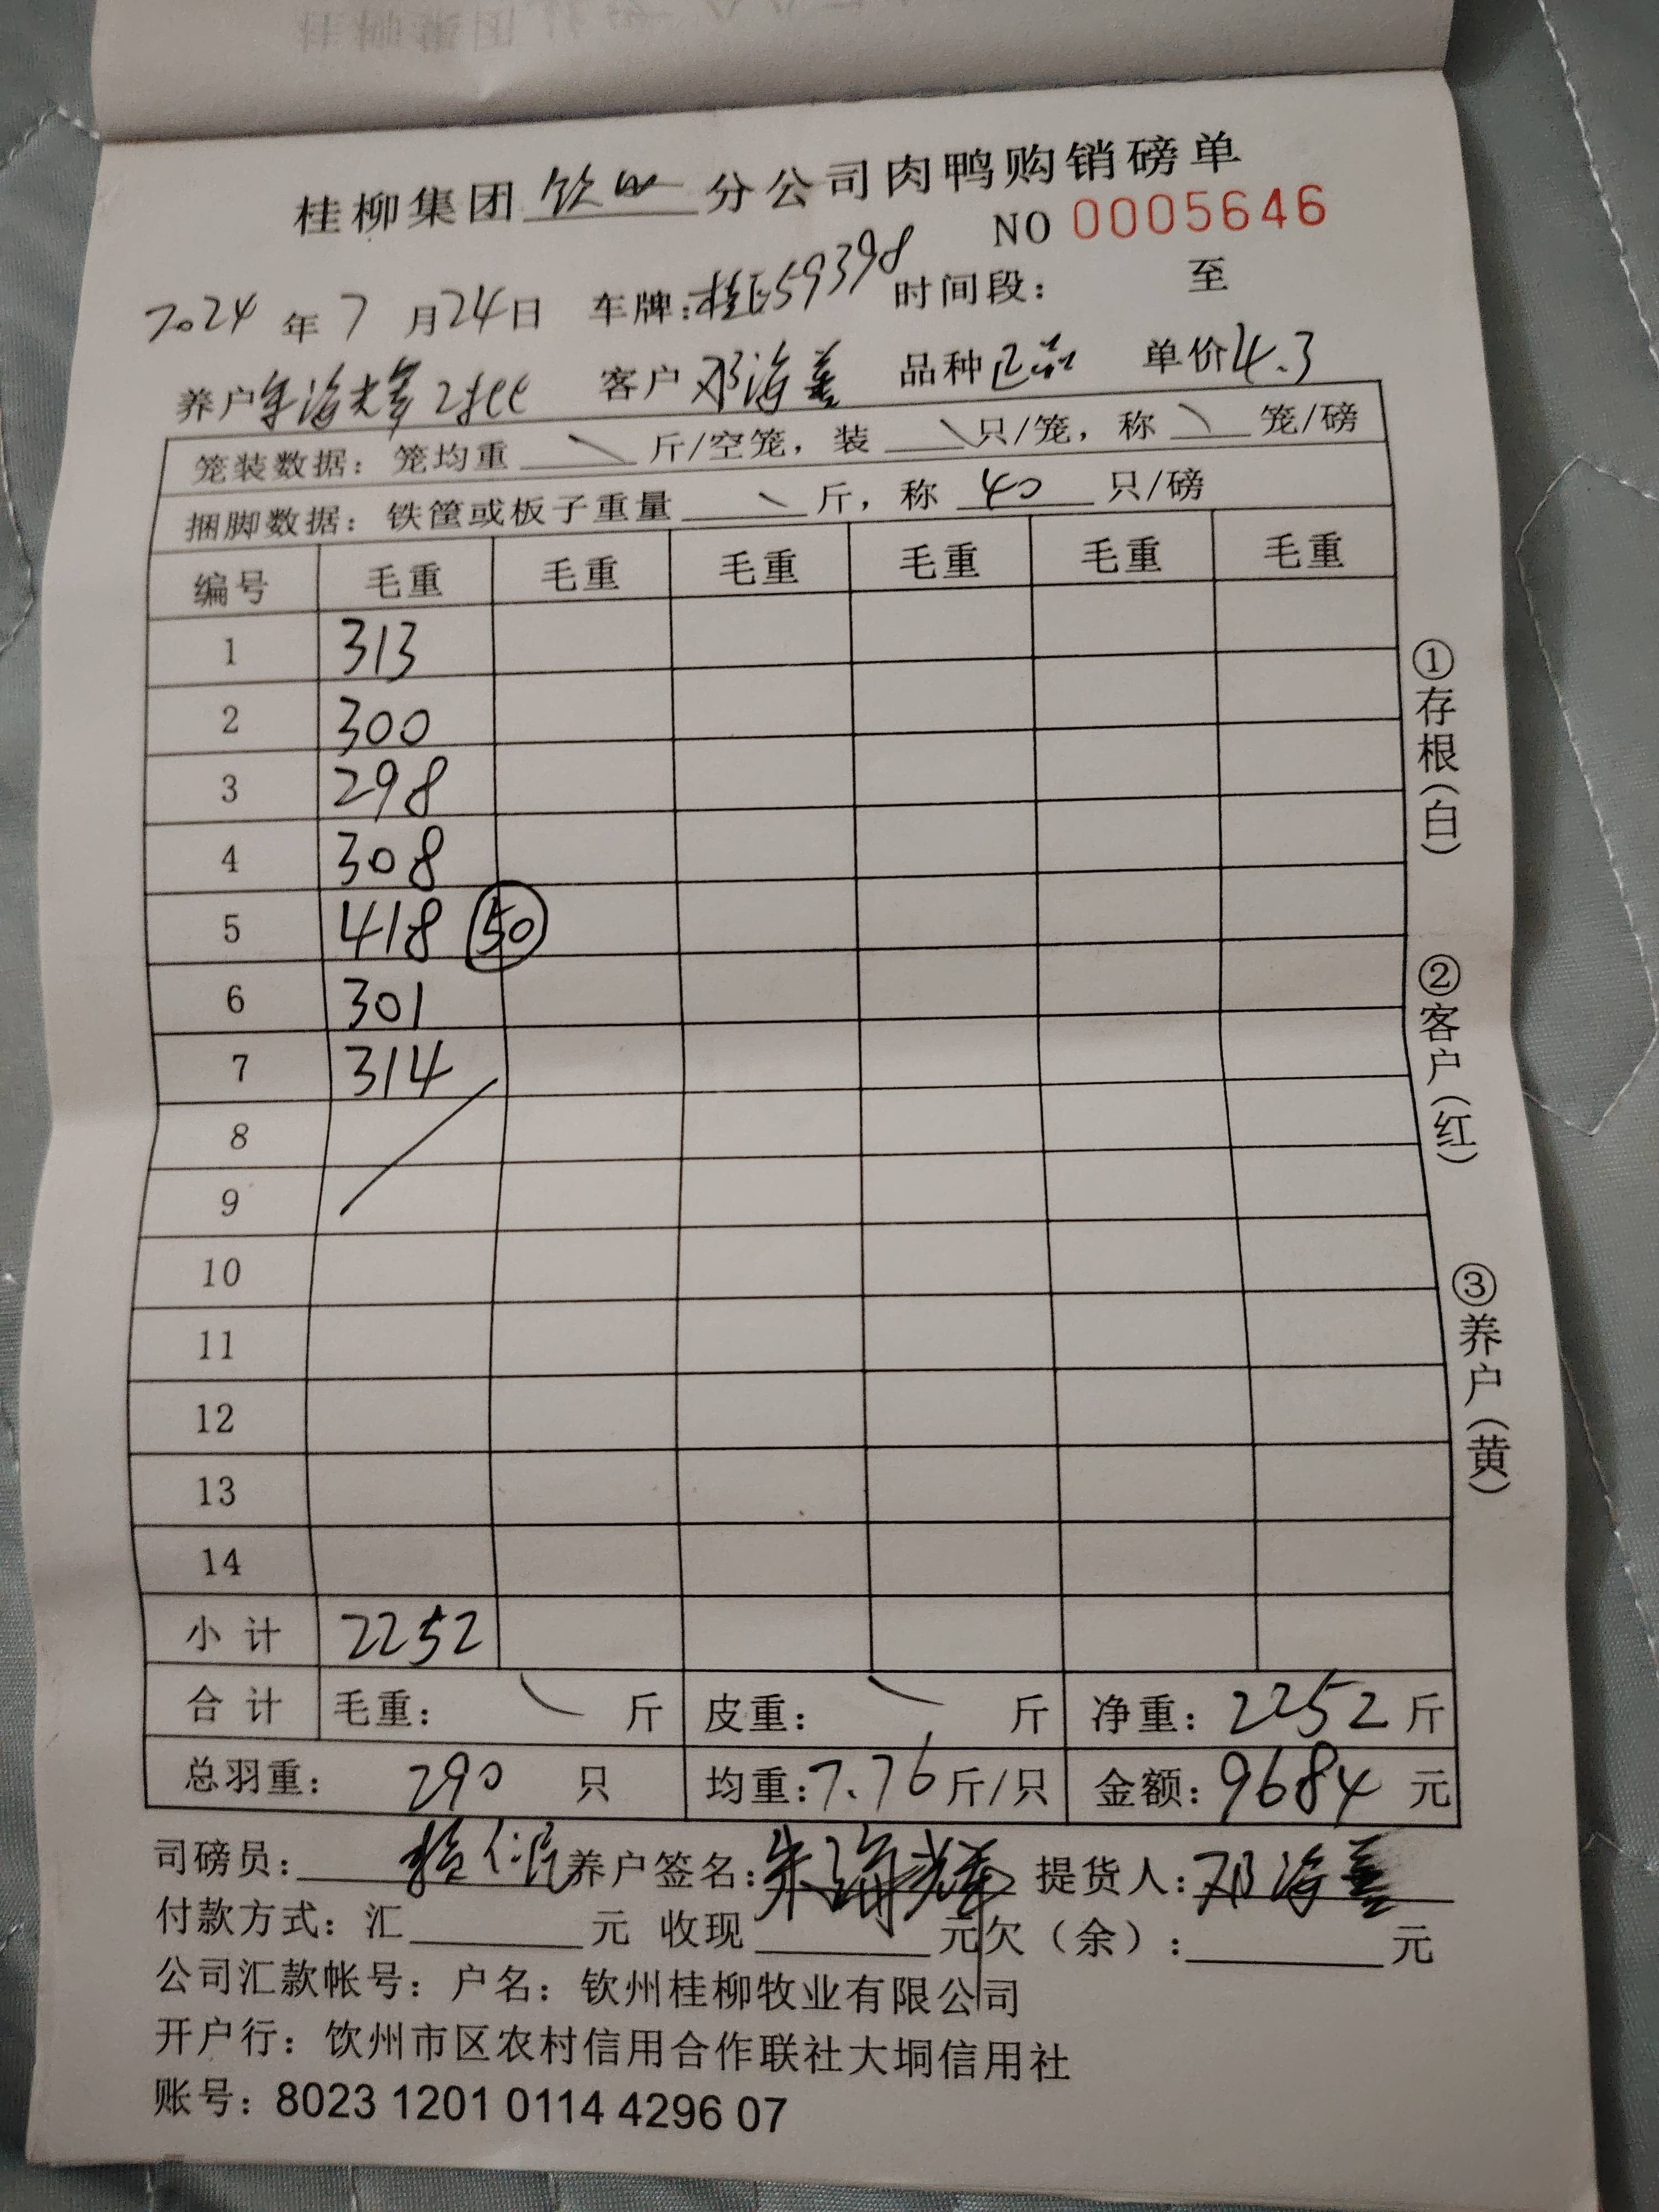 桂柳集团 钦州 分公司肉鸭购销磅单
NO 0005646
2024 年 7 月 24 日 车牌: 59398 时间段: 至
养户 客户 邓海善 品种 单价 4.3
笼装数据: 笼均重 \ 斤/空笼, 装 \ 只/笼, 称 \ 笼/磅
捆脚数据: 铁筐或板子重量 \ 斤, 称 40 只/磅
编号 毛重 毛重 毛重 毛重 毛重 毛重
1 313
2 300
3 298
4 308
5 418 50
6 301
7 314
8
9
10
11
12
13
14
小 计 2252
合 计 毛重: \ 斤 皮重: \ 斤 净重: 2252 斤
总羽重: 290 只 均重: 7.76 斤/只 金额: 9684 元
司磅员: 养户签名: 朱海辉 提货人: 邓海善
付款方式: 汇 元 收现 元 欠(余): 元
公司汇款帐号: 户名: 钦州桂柳牧业有限公司
开户行: 钦州市区农村信用合作联社大垌信用社
账号: 8023 1201 0114 4296 07
①存根(白)
②客户(红)
③养户(黄)